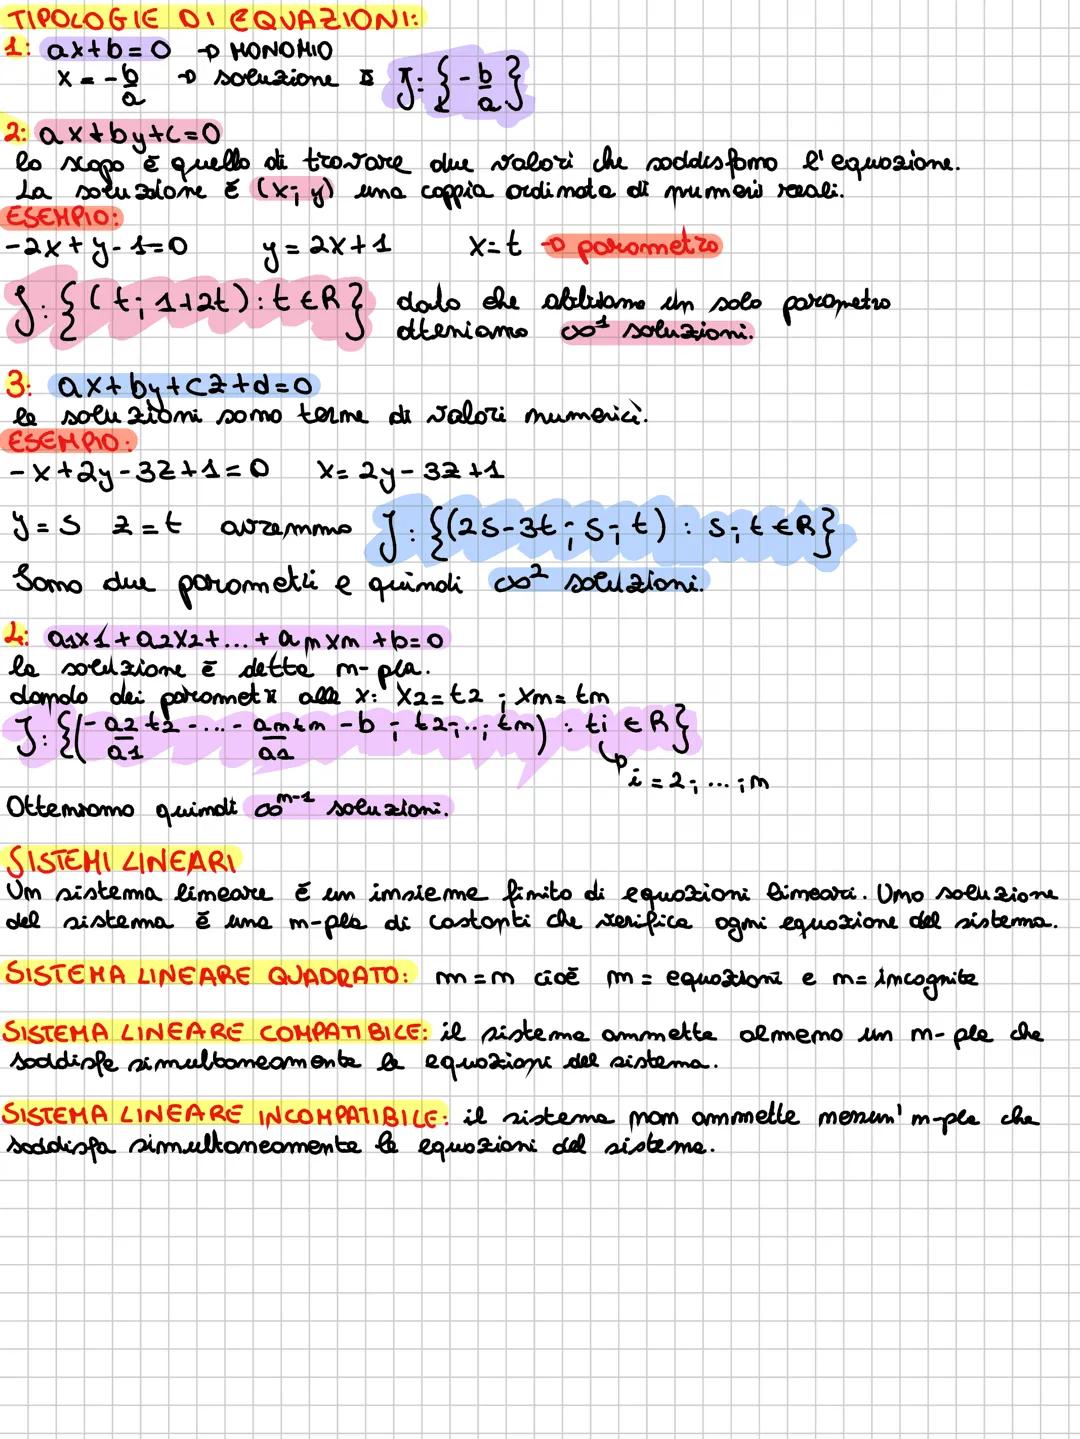 TIPOLOGIE DI EQUAZIONI:
1: ax+b=0 → MONOMIO
x = -b/a → soluzione è S: {-b/a}
2: ax+by+c=0
lo scopo è quello di trovare due valori che soddisfano l'equazione.
La soluzione è (x; y) una coppia ordinata di numeri reali.
ESEMPIO:
-2x+y-1=0 y=2x+1 x=t → parametro
S: {(t; 1+2t): t∈R} dato che abbiamo un solo parametro
otteniamo ∞¹ soluzioni.
3: ax+by+cz+d=0
le soluzioni sono terne di valori numerici.
ESEMPIO:
-x+2y-3z+1=0 x=2y-3z+1
y=s z=t avremmo S: {(2s-3t; s; t): s; t∈R}
Sono due parametri e quindi ∞² soluzioni.
4: a1x1+a2x2+...+anxn+b=0
la soluzione è detta n-pla.
dando dei parametri alle x: x2=t2; xn=tn
S: {(-a2/a1 t2-...-an/a1 tn -b; t2;..; tn): ti ∈R}
i=2; ...;n
Otteniamo quindi ∞ⁿ⁻¹ soluzioni.
SISTEMI LINEARI
Un sistema lineare è un insieme finito di equazioni lineari. Una soluzione
del sistema è una n-pla di costanti che verifica ogni equazione del sistema.
SISTEMA LINEARE QUADRATO: m=n cioè m= equazioni e n= incognite
SISTEMA LINEARE COMPATIBILE: il sistema ammette almeno un n-pla che
soddisfa simultaneamente le equazioni del sistema.
SISTEMA LINEARE INCOMPATIBILE: il sistema non ammette nessun' n-pla che
soddisfa simultaneamente le equazioni del sistema.